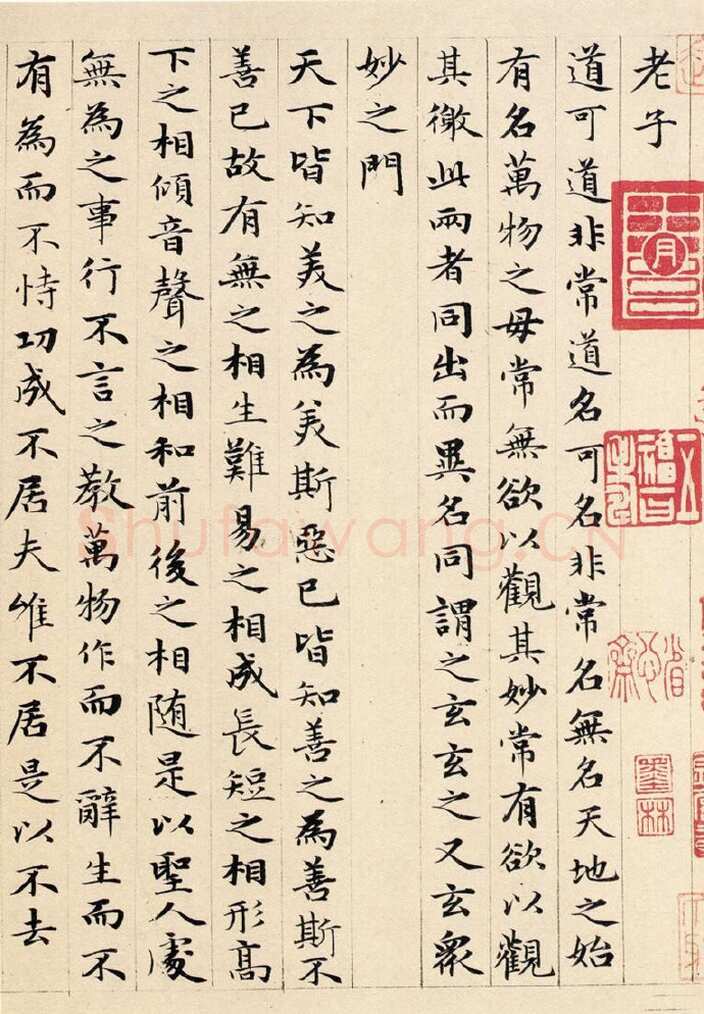 老子
道可道非常道名可名非常名無名天地之始
有名萬物之母常無欲以觀其妙常有欲以觀
其徼此兩者同出而異名同謂之玄玄之又玄衆
妙之門
天下皆知美之為美斯惡已皆知善之為善斯不
善已故有無之相生難易之相成長短之相形髙
下之相傾音聲之相和前後之相随是以聖人處
無為之事行不言之教萬物作而不辭生而不
有為而不恃功成不居夫惟不居是以不去
墨林
Shufawang.CN